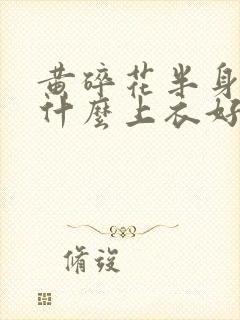 黄碎花半身
什麼上衣好
脩 : 䇓